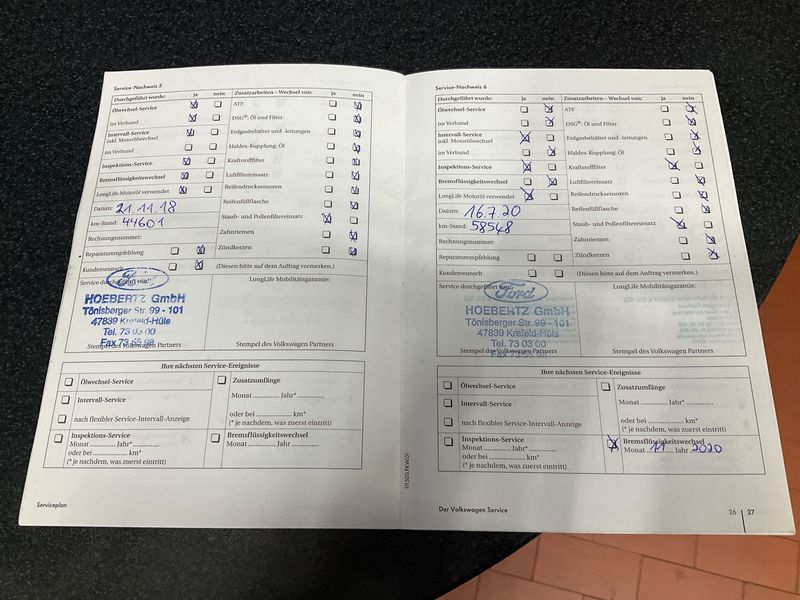 Service-Nachweis 5
Durchgeführt wurde: ja nein Zusatzarbeiten – Wechsel von: ja nein
Ölwechsel-Service ATF
im Verbund DSG®: Öl und Filter
Intervall-Service Erdgasbehälter und -leitungen
inkl. Motorölwechsel
im Verbund Haldex-Kupplung: Öl
Inspektions-Service Kraftstofffilter
Bremsflüssigkeitswechsel Luftfiltereinsatz
LongLife Motoröl verwendet Reifendrucksensoren
Datum: 21.11.18 Reifenfüllflasche
km-Stand: 44601 Staub- und Pollenfiltereinsatz
Rechnungsnummer: Zahnriemen
Reparaturempfehlung Zündkerzen
Kundenwunsch (Diesen bitte auf dem Auftrag vermerken.)
Service durchgeführt von: LongLife Mobilitätsgarantie:
Ford
HOEBERTZ GmbH
Tönisberger Str. 99 - 101
47839 Krefeld-Hüls
Tel. 73 03 00
Fax 73 55 98
Stempel des Volkswagen Partners Stempel des Volkswagen Partners
Ihre nächsten Service-Ereignisse
Ölwechsel-Service Zusatzumfänge
Intervall-Service Monat .............. Jahr* ..............
nach flexibler Service-Intervall-Anzeige oder bei .............. km*
(* je nachdem, was zuerst eintritt)
Inspektions-Service Bremsflüssigkeitswechsel
Monat .............. Jahr* .............. Monat .............. Jahr ..............
oder bei .............. km*
(* je nachdem, was zuerst eintritt)
Serviceplan
Service-Nachweis 6
Durchgeführt wurde: ja nein Zusatzarbeiten – Wechsel von: ja nein
Ölwechsel-Service ATF
im Verbund DSG®: Öl und Filter
Intervall-Service Erdgasbehälter und -leitungen
inkl. Motorölwechsel
im Verbund Haldex-Kupplung: Öl
Inspektions-Service Kraftstofffilter
Bremsflüssigkeitswechsel Luftfiltereinsatz
LongLife Motoröl verwendet Reifendrucksensoren
Datum: 16.7.20 Reifenfüllflasche
km-Stand: 58548 Staub- und Pollenfiltereinsatz
Rechnungsnummer: Zahnriemen
Reparaturempfehlung Zündkerzen
Kundenwunsch (Diesen bitte auf dem Auftrag vermerken.)
Service durchgeführt von: LongLife Mobilitätsgarantie:
Ford
HOEBERTZ GmbH
Tönisberger Str. 99 - 101
47839 Krefeld-Hüls
Tel. 73 03 00
Stempel des Volkswagen Partners Stempel des Volkswagen Partners
Ihre nächsten Service-Ereignisse
Ölwechsel-Service Zusatzumfänge
Intervall-Service Monat .............. Jahr* ..............
nach flexibler Service-Intervall-Anzeige oder bei .............. km*
(* je nachdem, was zuerst eintritt)
Inspektions-Service Bremsflüssigkeitswechsel
Monat .............. Jahr* .............. Monat 11 Jahr 2020
oder bei .............. km*
(* je nachdem, was zuerst eintritt)
Der Volkswagen Service 26 | 27